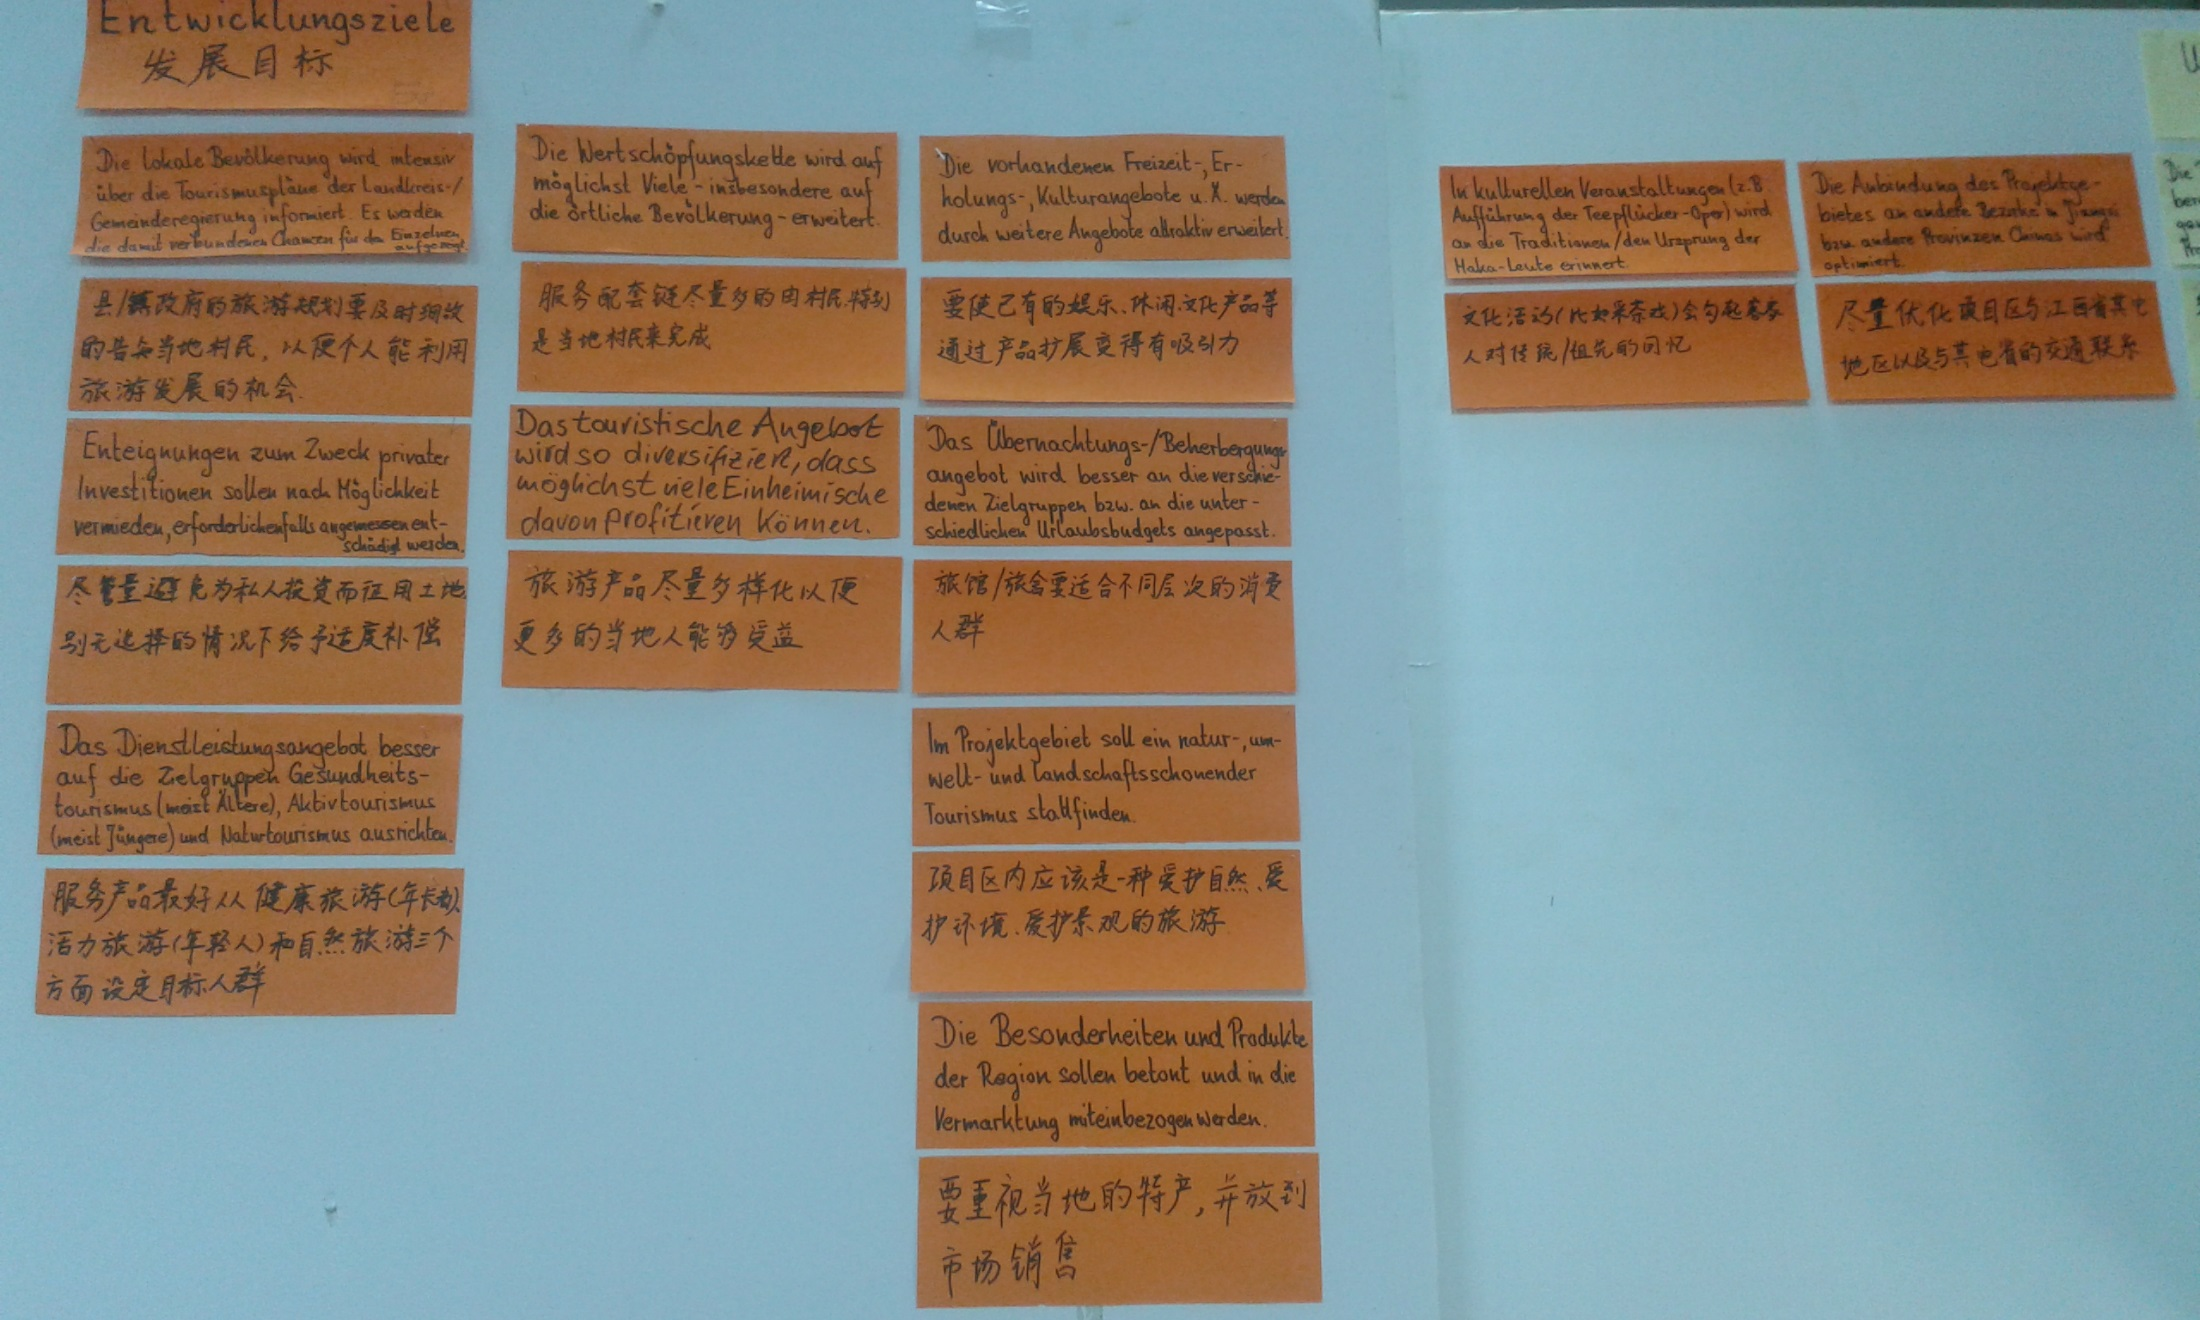 Entwicklungsziele
发展目标
Die lokale Bevölkerung wird intensiv
über die Tourismuspläne der Landkreis-/
Gemeinderegierung informiert. Es werden
die damit verbundenen Chancen für den Einzelnen
aufgezeigt.
县/镇政府的旅游规划要及时细致
的告知当地村民,以便个人能利用
旅游发展的机会.
Enteignungen zum Zweck privater
Investitionen sollen nach Möglichkeit
vermieden, erforderlichenfalls angemessen ent-
schädigt werden.
尽量避免为私人投资而征用土地.
别无选择的情况下给予适度补偿
Das Dienstleistungsangebot besser
auf die Zielgruppen Gesundheits-
tourismus (meist Ältere), Aktivtourismus
(meist Jüngere) und Naturtourismus ausrichten.
服务产品最好从健康旅游(年长者)、
活力旅游(年轻人)和自然旅游三个
方面设定目标人群
Die Wertschöpfungskette wird auf
möglichst Viele - insbesondere auf
die örtliche Bevölkerung - erweitert.
服务配套链尽量多的由村民.特别
是当地村民来完成
Das touristische Angebot
wird so diversifiziert, dass
möglichst viele Einheimische
davon profitieren können.
旅游产品尽量多样化以便
更多的当地人能够受益
Die vorhandenen Freizeit-, Er-
holungs-, Kulturangebote u.Ä. werden
durch weitere Angebote attraktiv erweitert.
要使已有的娱乐、休闲.文化产品等
通过产品扩展变得有吸引力
Das Übernachtungs-/Beherbergungs-
angebot wird besser an die verschie-
denen Zielgruppen bzw. an die unter-
schiedlichen Urlaubsbudgets angepasst.
旅馆/旅舍要适合不同层次的消费
人群
Im Projektgebiet soll ein natur-, um-
welt- und landschaftsschonender
Tourismus stattfinden.
项目区内应该是一种爱护自然、爱
护环境.爱护景观的旅游.
Die Besonderheiten und Produkte
der Region sollen betont und in die
Vermarktung miteinbezogen werden.
要重视当地的特产,并放到
市场销售
In kulturellen Veranstaltungen (z.B
Aufführung der Teepflücker-Oper) wird
an die Traditionen/den Ursprung der
Haka-Leute erinnert.
文化活动(比如采茶戏)会勾起客家
人对传统/祖先的回忆
Die Anbindung des Projektge-
bietes an andere Bezirke in Jiangxi
bzw. andere Provinzen Chinas wird
optimiert.
尽量优化项目区与江西省其它
地区以及与其它省的交通联系
Die